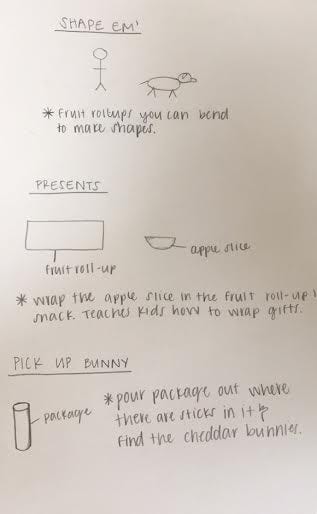 SHAPE EM'
* Fruit rollups you can bend
to make shapes.
PRESENTS
apple slice
fruit roll-up
* wrap the apple slice in the fruit roll-up
snack. Teaches kids how to wrap gifts.
PICK UP BUNNY
package
* pour package out where
there are sticks in it &
find the cheddar bunnies.